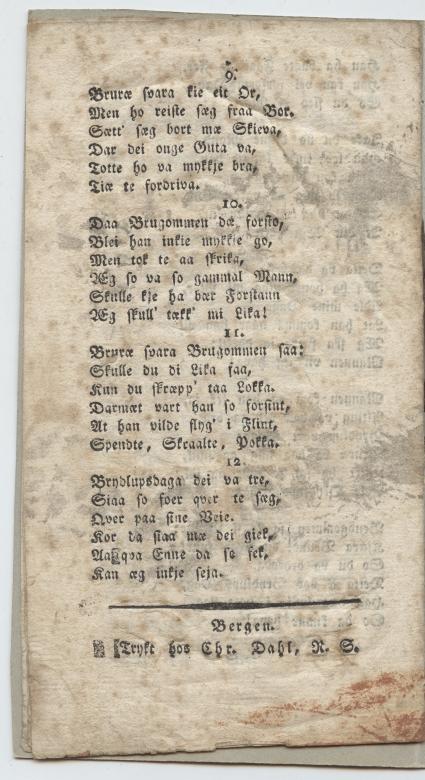 9.
Bruræ svara kie eit Or,
Men ho reiste sæg fraa Bor.
Sætt' sæg bort mæ Skieva,
Dar dei onge Guta va,
Totte ho va mykkje bra,
Tiæ te fordriva.
10.
Daa Brugommen dæ forsto,
Blei han inkie mykkje go,
Men tok te aa skrika,
Æg so va so gammal Mann,
Skulle kje ha bær Forstann
Æg skull' tækk' mi Lika!
11.
Bruræ svara Brugommen saa:
Skulle du di Lika faa,
Kun du skræpp' taa Lokka.
Darmæt vart han so forstint,
At han vilde flyg' i Flint,
Spendte, Skraalte, Pokka.
12
Brydlupsdaga dei va tre,
Siaa so foer qver te sæg,
Qver paa sine Veie.
Kor da siaa mæ dei giek,
Aa qva Enne da so fek,
Kan æg inkje seja.
Bergen.
Trykt hos Chr. Dahl, R. S.